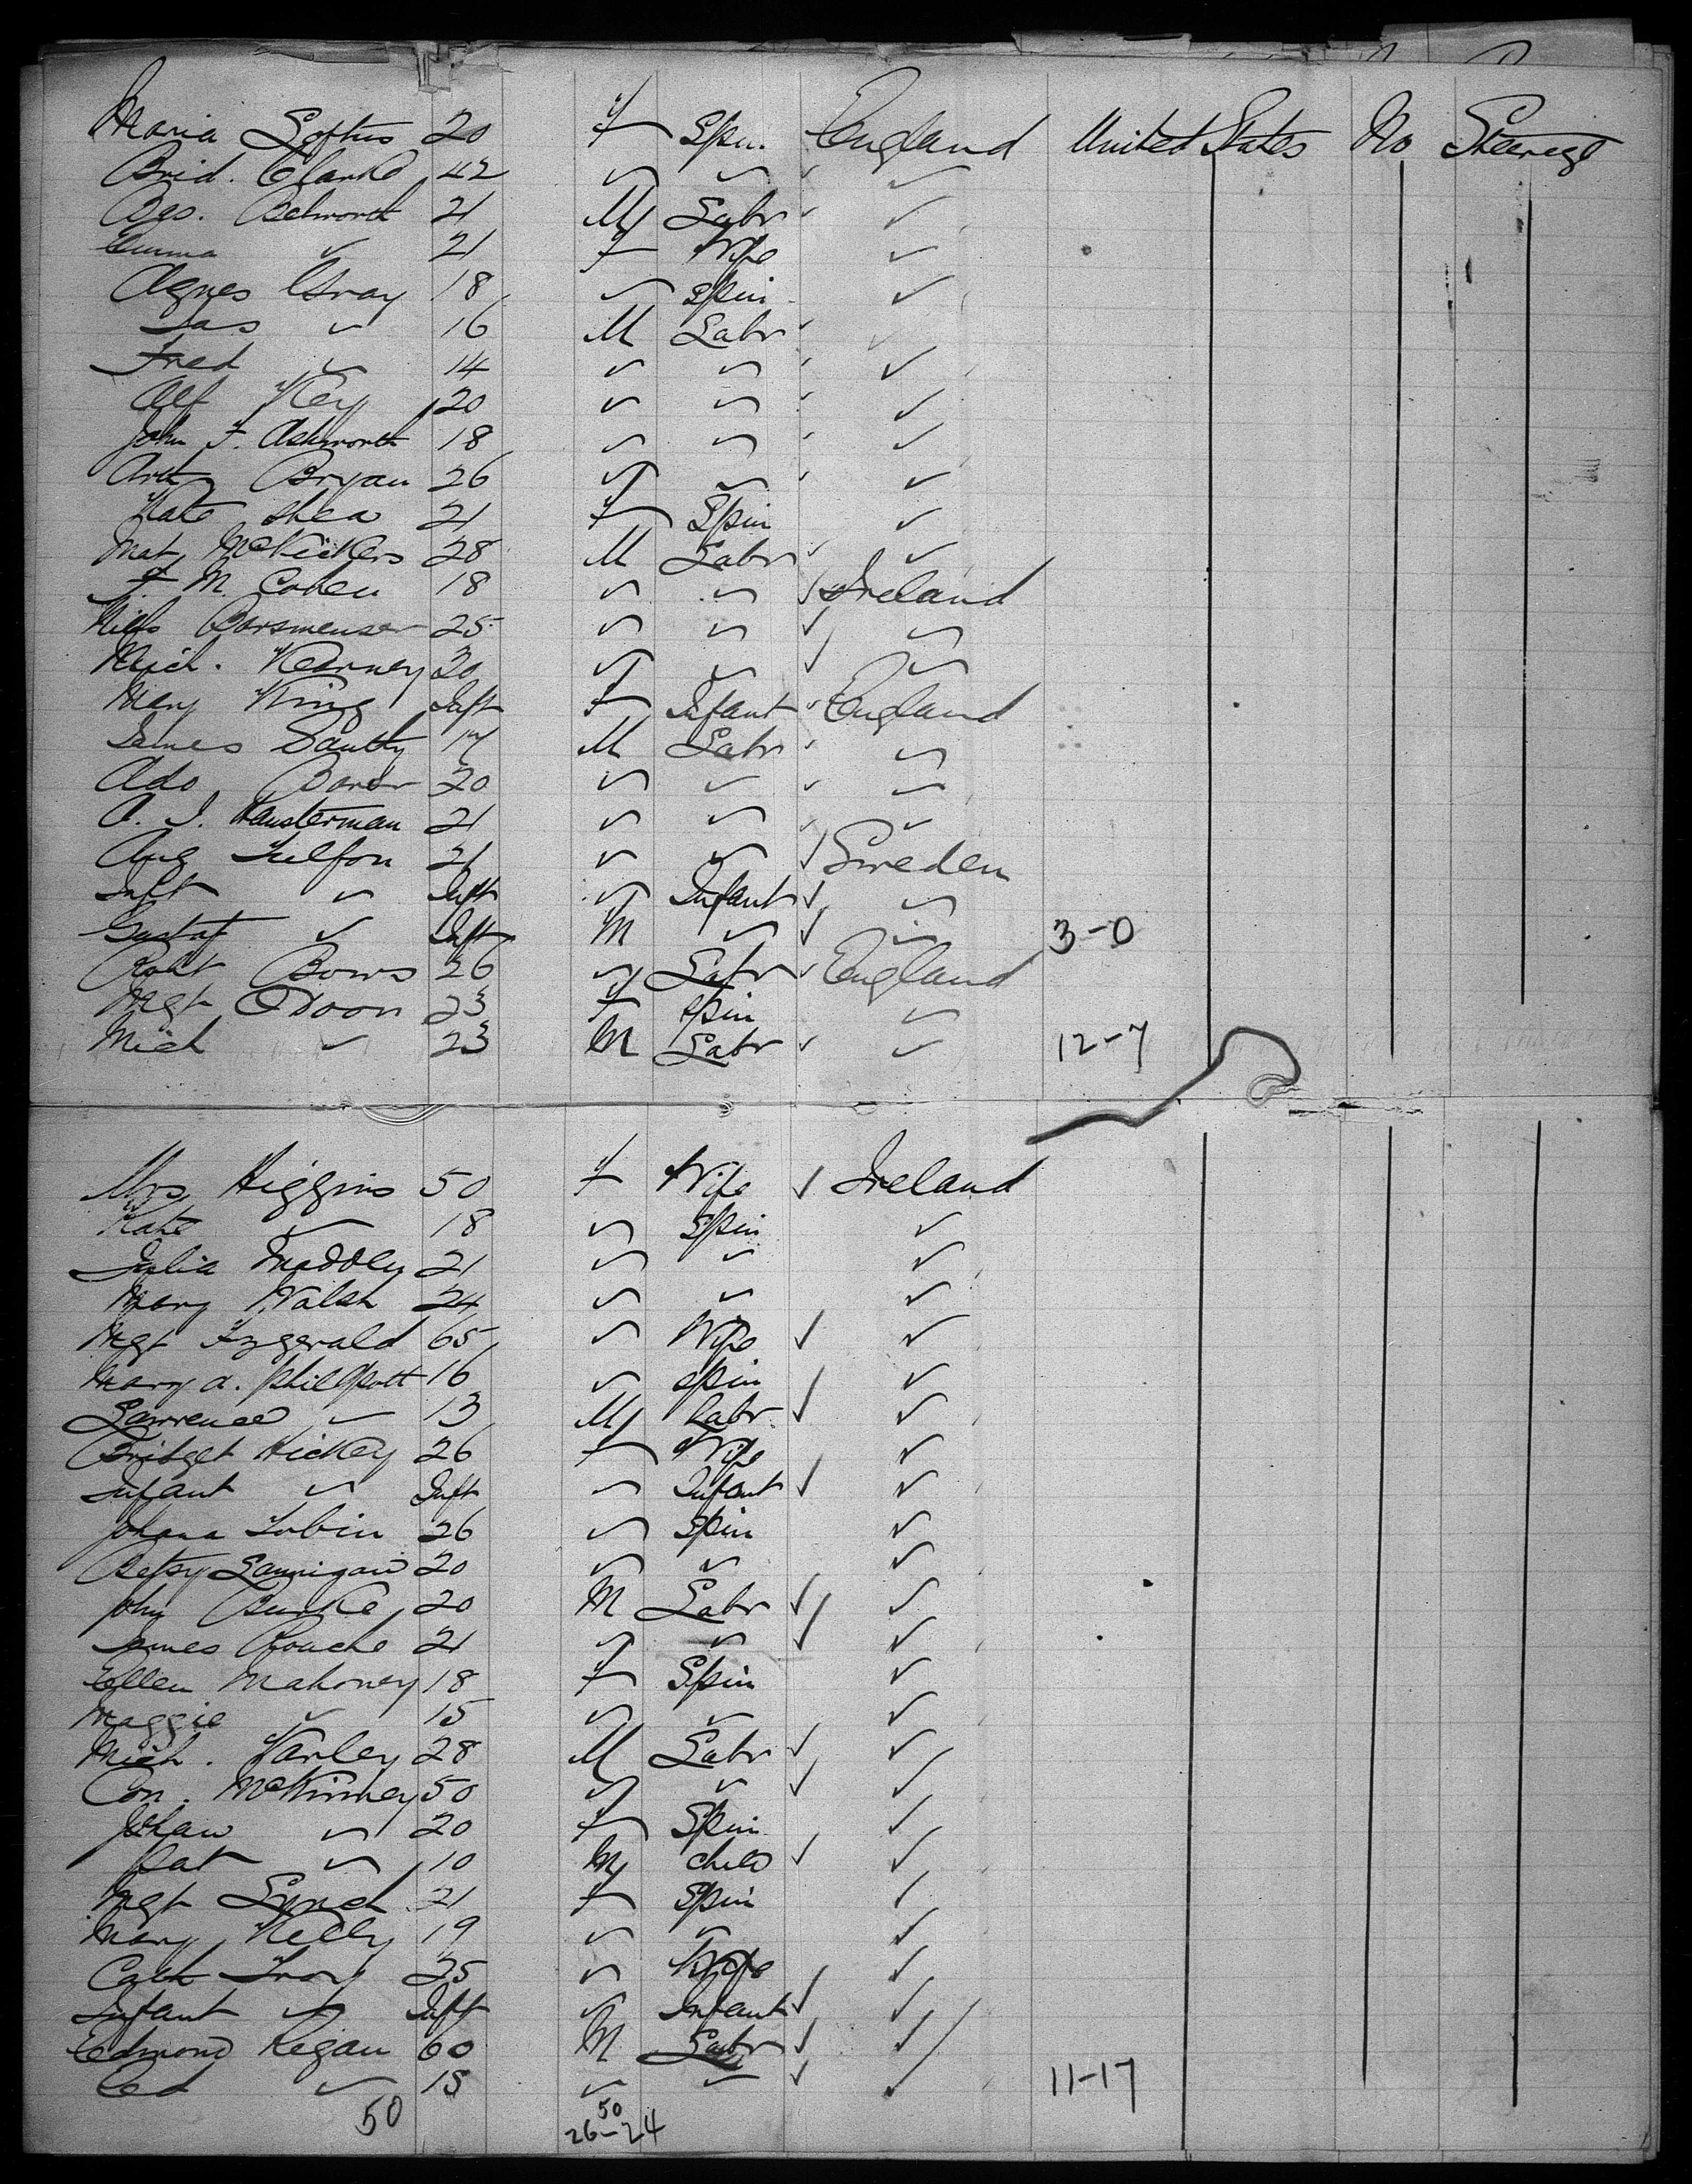 Maria Loftus 20 F Spin. England United States No Steerage
Brid. Clarke 42 " " "
Geo. Betworth 21 M Labr "
Emma " 21 F Wife "
Agnes Gray 18 " Spin "
Jas " 16 M Labr
Fred " 14 " " "
Alf Key 20 " " "
John F. Ashworth 18 " " "
Arth Bryan 26 " " "
Kate Shea 21 F Spin "
Mat McVickers 28 M Labr "
F. M. Cohen 18 " " Ireland
Nils 25 " " "
Mich. Kearney 20 " " "
Mary King Inft F Infant England
James 17 M Labr "
Ado 20 " " "
A. J. Hausterman 21 " " "
Aug 21 " " Sweden
Inft " Inft " Infant "
Gustaf " Inft M " " 3-0
Robt Bows 26 " Labr England
Mgt 23 F Spin "
Mich " 23 M Labr " 12-7
Mrs Higgins 50 F Wife Ireland
Kate " 18 " Spin "
Julia Maddley 21 " " "
Mary Walsh 24 " " "
Mgt Fzgerald 65 " Wife "
Mary A. Philpott 16 " Spin "
Lawrence " 13 M Labr "
Bridget Hickey 26 F Wife "
Infant " Inft " Infant "
Johana Tobin 26 " Spin "
Betsy Lannigan 20 " " "
John Burke 20 M Labr "
James Rouche 21 " " "
Ellen Mahoney 18 F Spin "
Maggie " 15 " " "
Mich. Varley 28 M Labr "
Con. McKinney 50 " " "
Johan " 20 F Spin "
Pat " 10 M Child "
Mgt Lynch 21 F Spin "
Mary Kelly 19 " " "
Cath Troy 25 " Wife "
Infant " Inft " Infant "
Edmond Regan 60 M Labr "
Ed " 15 " " " 11-17
50 50
26-24